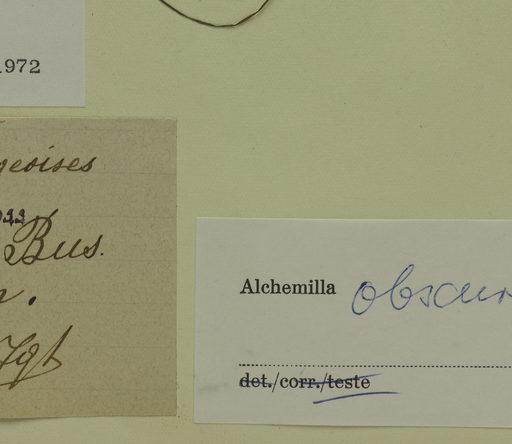 1972
geoises
Bus.
Alchemilla obscur
det./corr./teste